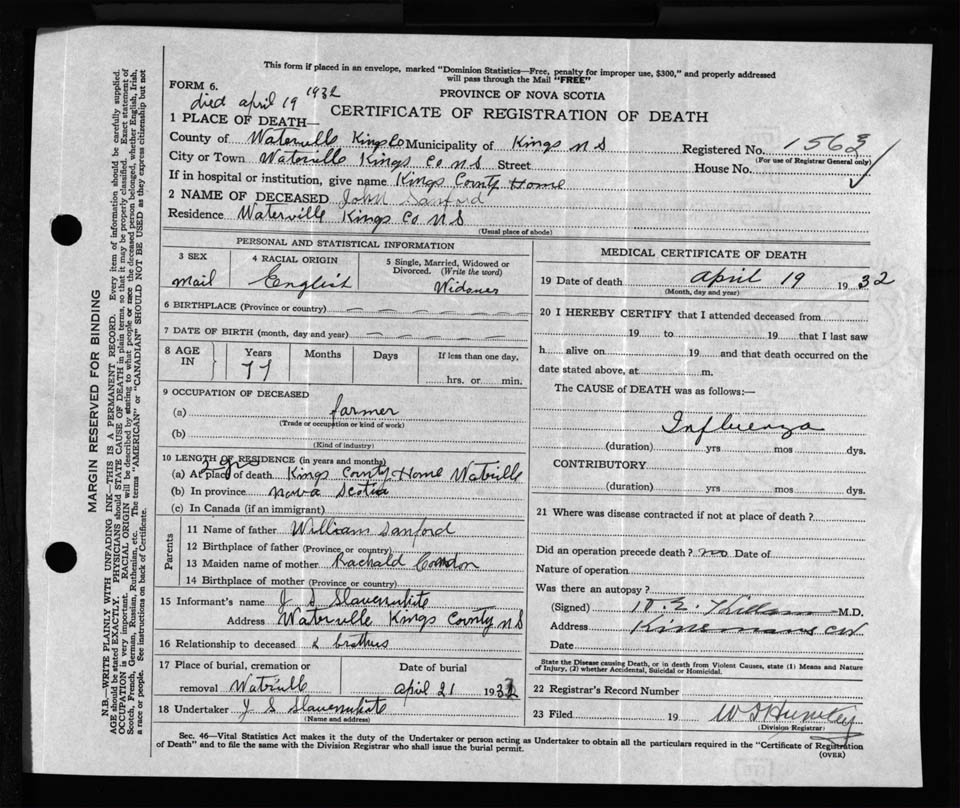 This form if placed in an envelope, marked "Dominion Statistics—Free, penalty for improper use, $300," and properly addressed
will pass through the Mail "FREE"
FORM 6.
PROVINCE OF NOVA SCOTIA
died april 19 1932
CERTIFICATE OF REGISTRATION OF DEATH
1 PLACE OF DEATH—
County of Waterville Kings Co Municipality of Kings N S Registered No. 1563
(For use of Registrar General only)
City or Town Waterville Kings Co N S Street House No.
If in hospital or institution, give name Kings County Home
2 NAME OF DECEASED John Sanford
Residence Waterville Kings Co N S
(Usual place of abode)
PERSONAL AND STATISTICAL INFORMATION
3 SEX
mail
4 RACIAL ORIGIN
English
5 Single, Married, Widowed or
Divorced. (Write the word)
Widower
6 BIRTHPLACE (Province or country)
7 DATE OF BIRTH (month, day and year)
8 AGE
IN
Years Months Days If less than one day.
77
hrs. or min.
9 OCCUPATION OF DECEASED
(a) farmer
(Trade or occupation or kind of work)
(b)
(Kind of industry)
10 LENGTH OF RESIDENCE (in years and months)
(a) At place of death Kings County Home Waterville
(b) In province Nova Scotia
(c) In Canada (if an immigrant)
Parents
11 Name of father William Sanford
12 Birthplace of father (Province or country)
13 Maiden name of mother Rachald Condon
14 Birthplace of mother (Province or country)
15 Informant's name J S
Address Waterville Kings County N S
16 Relationship to deceased
17 Place of burial, cremation or
removal Waterville
Date of burial
april 21 1932
18 Undertaker J S
(Name and address)
MEDICAL CERTIFICATE OF DEATH
19 Date of death april 19 1932
(Month, day and year)
20 I HEREBY CERTIFY that I attended deceased from
19 to 19 that I last saw
h alive on 19 and that death occurred on the
date stated above, at m.
The CAUSE of DEATH was as follows:—
Influenza
(duration) yrs mos dys.
CONTRIBUTORY
(duration) yrs mos dys.
21 Where was disease contracted if not at place of death?
Did an operation precede death? no Date of
Nature of operation
Was there an autopsy?
(Signed) M.D.
Address
Date
State the Disease causing Death, or in death from Violent Causes, state (1) Means and Nature
of Injury, (2) whether Accidental, Suicidal or Homicidal.
22 Registrar's Record Number
23 Filed 19
(Division Registrar)
Sec. 46—Vital Statistics Act makes it the duty of the Undertaker or person acting as Undertaker to obtain all the particulars required in the "Certificate of Registration
of Death" and to file the same with the Division Registrar who shall issue the burial permit.
(OVER)
MARGIN RESERVED FOR BINDING
N.B.—WRITE PLAINLY WITH UNFADING INK—THIS IS A PERMANENT RECORD. Every item of information should be carefully supplied.
AGE should be stated EXACTLY. PHYSICIANS should STATE CAUSE OF DEATH in plain terms, so that it may be properly classified. Exact statement of
OCCUPATION is very important. RACIAL ORIGIN will be described by stating to what people or race the deceased person belonged, whether English, Irish,
Scotch, French, German, Russian, Ruthenian, etc. The terms "AMERICAN" or "CANADIAN" SHOULD NOT BE USED as they express citizenship but not
a race or people. See instructions on back of Certificate.